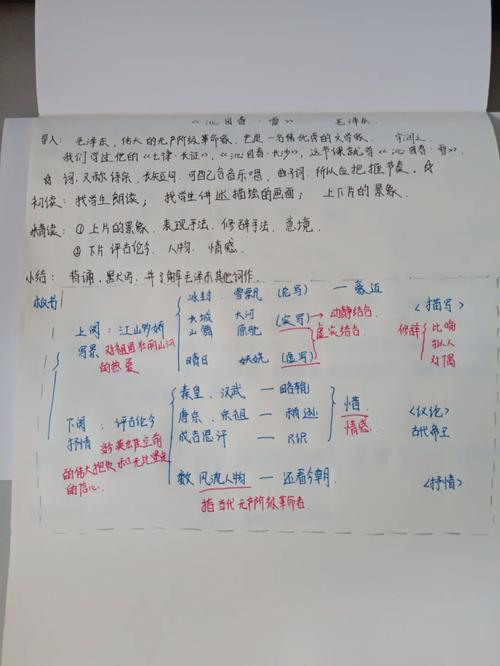 《沁园春·雪》 毛泽东.
导入: 毛泽东, 伟大的无产阶级革命家, 也是一名伟优秀的文学家. 字润之.
我们学过他的《七律·长征》,《沁园春·长沙》, 这节课就学《沁园春·雪》.
☆ 词, 又称诗余, 长短句, 可配合音乐唱, 由于词, 所以应把握节奏, ☆
初读: 找学生朗读; 找学生讲述描绘的画面; 上下片的景象.
精读: ①上片的景象, 表现手法, 修辞手法, 意境.
②下片 评古论今 人物. 情感.
小结: 背诵, 默写, 并了解毛泽东其他词作.
板书
上阕: 江山多娇
写景 对祖国壮丽山河
的热爱
冰封 雪飘 (总写) — 豪迈
长城 大河 (实写) → 动静结合
山舞 原驰 虚实结合
晴日 妖娆 (虚写)
<描写>
修辞 比喻
拟人
对偶
下阕: 评古论今
抒情
的伟大抱负和无比坚定
的信心
秦皇、汉武 — 略输
唐宗、宋祖 — 稍逊
成吉思汗 — 只识
惜.
情感.
<议论>
古代帝王
数 风流人物 — 还看今朝
<抒情>
指当代无产阶级革命者